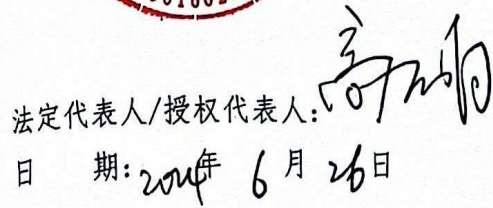 法定代表人/授权代表人:高
日 期:2024年 6 月 26日